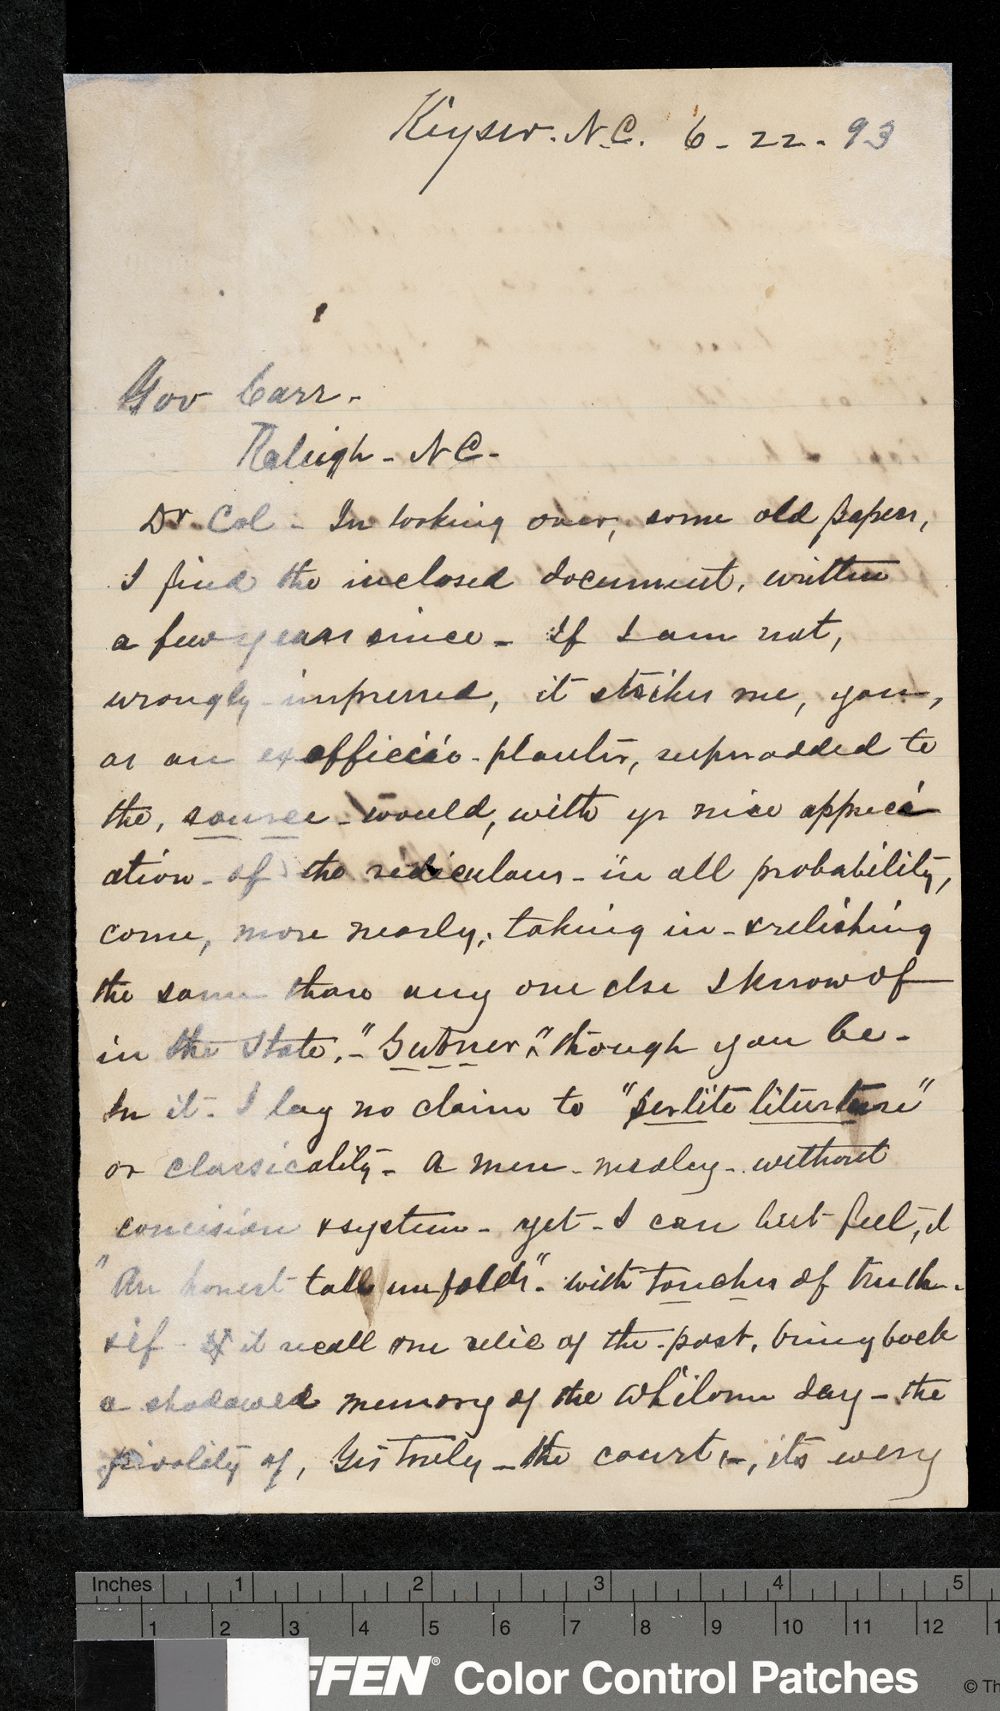 Keyser. N.C. 6-22-93
Gov Carr-
Raleigh- NC-
Dr Col- In looking over, some old papers,
I find the inclosed document, written
a few years since- If I am not,
wrongly impressed, it strikes me, you,
as an ex officio-planter, superadded to
the, source- would, with yr nice appreci
ation- of the ridiculous- in all probability,
come, more nearly, taking in- & relishing
the same than any one else I know of
in the State,- though you be-
in it- I lay no claim to
or classicality- A mere- medley- without
concision & system- yet- I can but feel,
"An honest tale unfolds"- with touches of truth-
& if it recall one relic of the past, bring back
a shadowed memory of the whilom day- the
of, Yrs truly- the court-, its every
Inches 1 2 3 4 5
1 2 3 4 5 6 7 8 9 10 11 12
FFEN® Color Control Patches
© Th